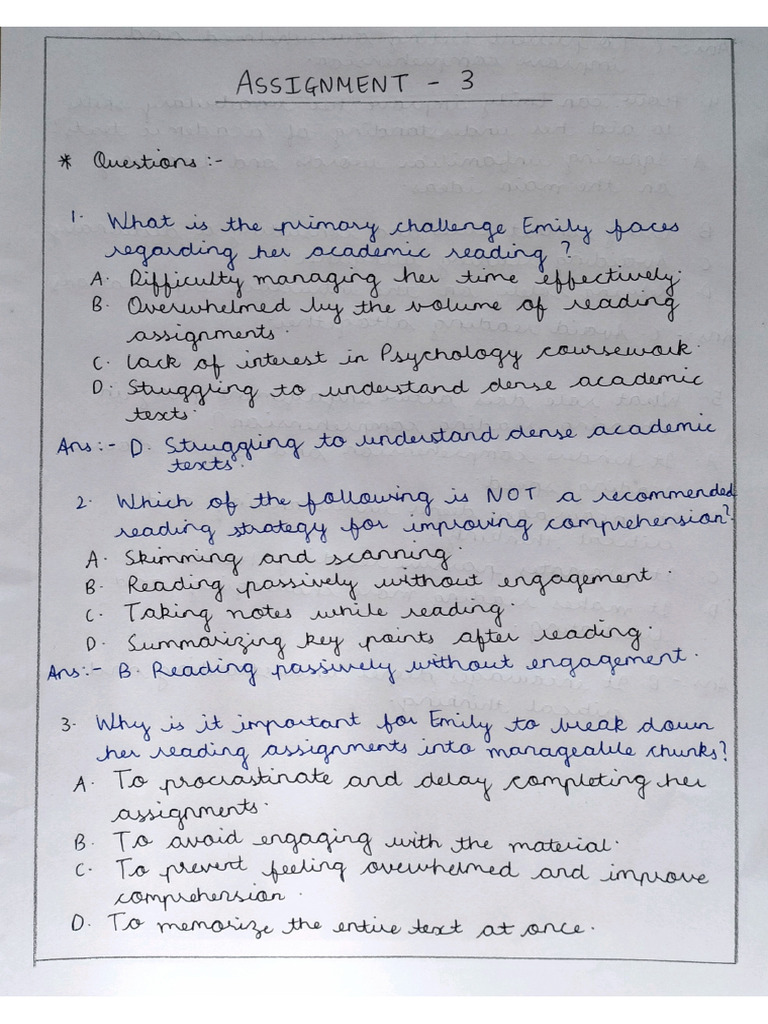 ASSIGNMENT - 3
* Questions :-
1. What is the primary challenge Emily faces
regarding her academic reading ?
A. Difficulty managing her time effectively.
B. Overwhelmed by the volume of reading
assignments.
C. Lack of interest in Psychology coursework.
D. Struggling to understand dense academic
texts.
Ans :- D. Struggling to understand dense academic
texts.
2. Which of the following is NOT a recommended
reading strategy for improving comprehension?
A. Skimming and scanning.
B. Reading passively without engagement.
C. Taking notes while reading.
D. Summarizing key points after reading.
Ans :- B. Reading passively without engagement.
3. Why is it important for Emily to break down
her reading assignments into manageable chunks?
A. To procrastinate and delay completing her
assignments.
B. To avoid engaging with the material.
C. To prevent feeling overwhelmed and improve
comprehension.
D. To memorize the entire text at once.